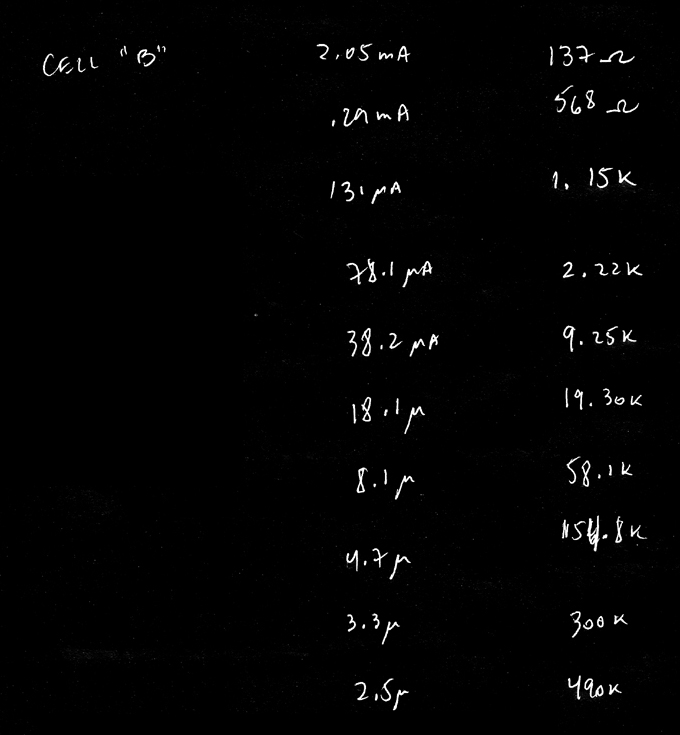 CELL "B" 2.05mA 137Ω
.29mA 568Ω
131μA 1.15K
78.1μA 2.22K
38.2μA 9.25K
18.1μ 19.30K
8.1μ 58.1K
4.7μ
3.3μ 300K
2.5μ 490K